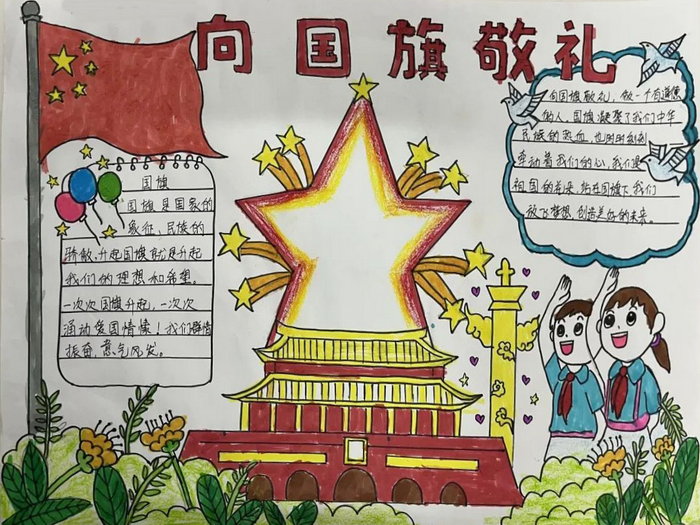 向国旗敬礼
国旗
国旗是国家的
象征、民族的
骄傲、升起国旗就是升起
我们的理想和希望。
一次次国旗升起，一次次
涌动爱国情愫！我们群情
振奋、意气风发。
向国旗敬礼，做一个有道德
的人，国旗凝聚了我们中华
民族的热血，也时时刻刻
牵动着我们的心，我们是
祖国的未来，站在国旗下我们
放飞梦想，创造美好的未来。